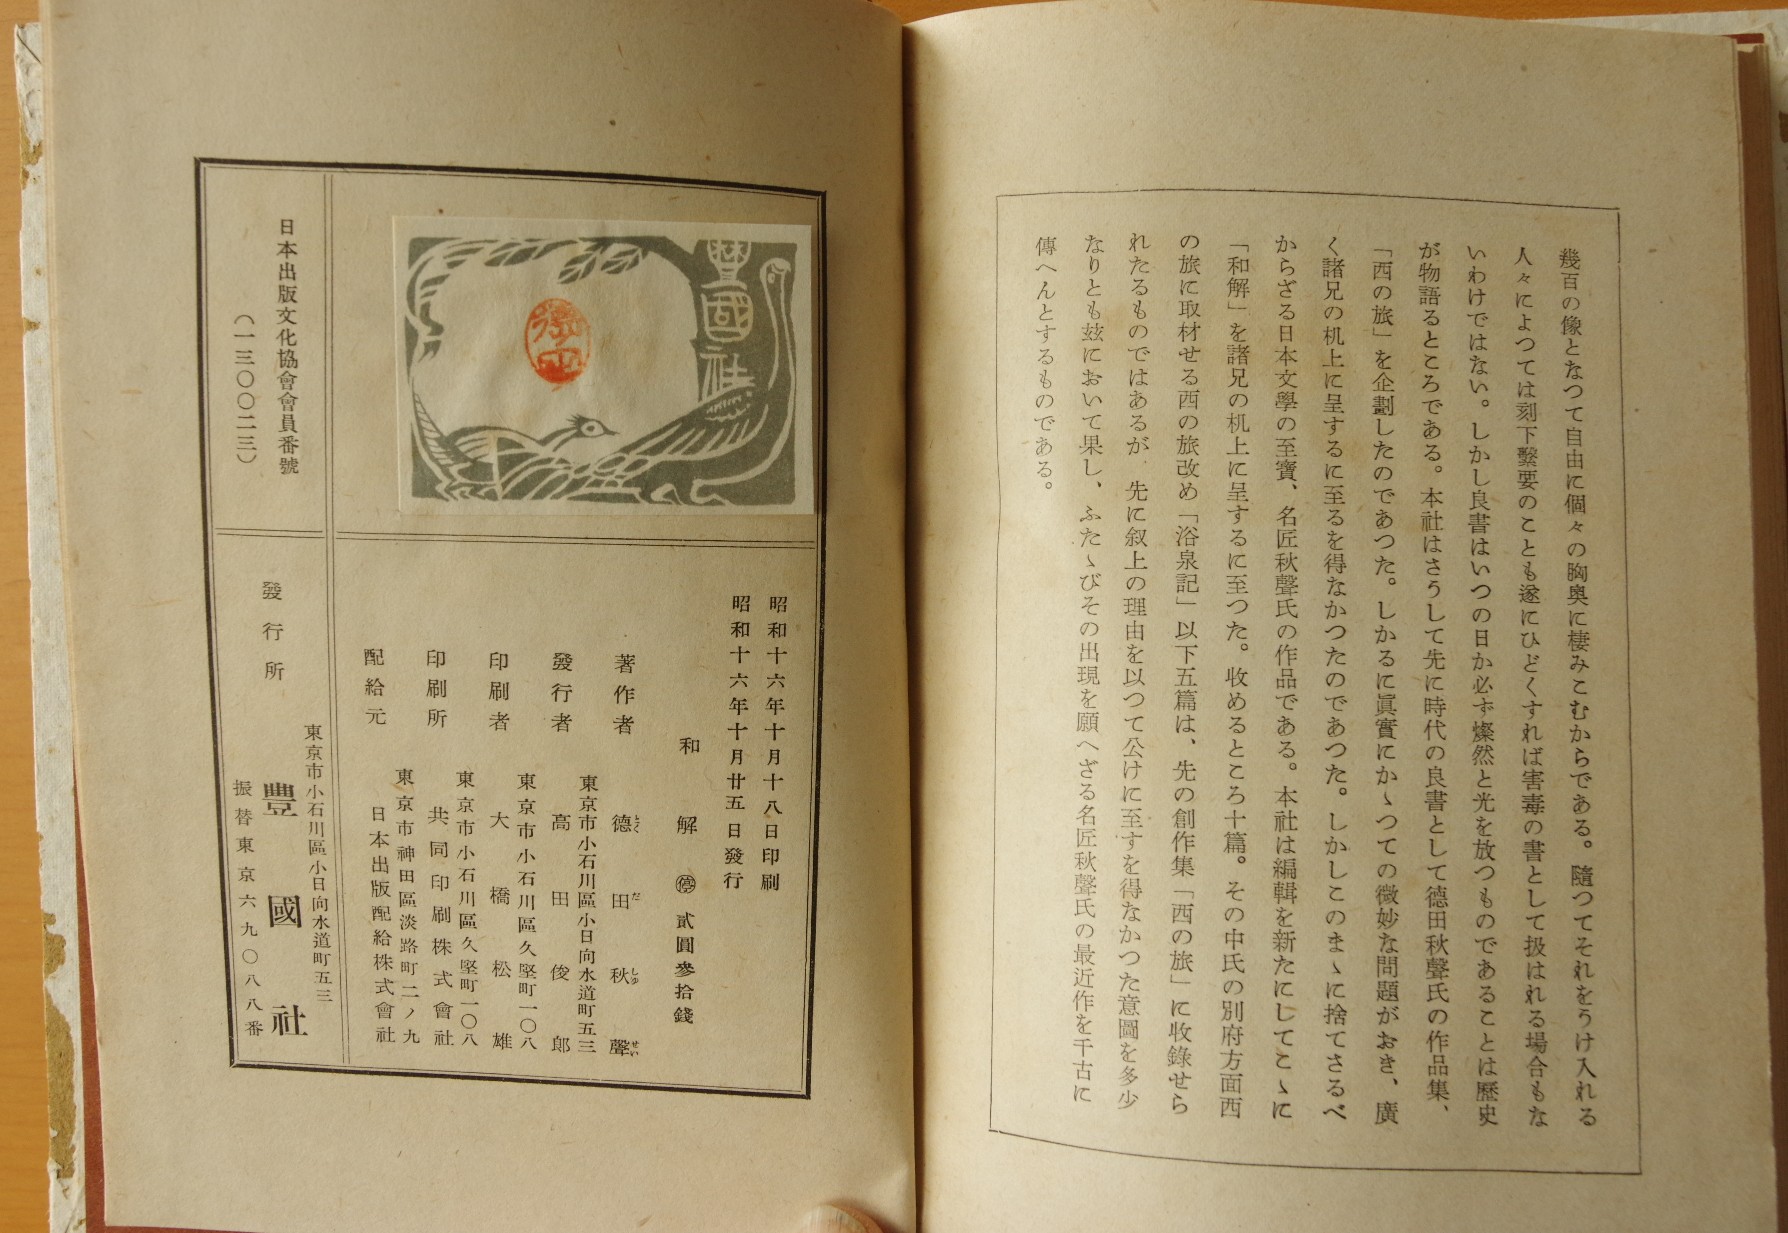 幾百の像となつて自由に個々の胸奥に棲みこむからである。隨つてそれをうけ入れる
人々によつては刻下繫要のことも遂にひどくすれば害毒の書として扱はれる場合もな
いわけではない。しかし良書はいつの日か必ず燦然と光を放つものであることは歷史
が物語るところである。本社はさうして先に時代の良書として德田秋聲氏の作品集、
「西の旅」を企劃したのであつた。しかるに眞實にかゝつての微妙な問題がおき、廣
く諸兄の机上に呈するに至るを得なかつたのであつた。しかしこのまゝに捨てさるべ
からざる日本文學の至寶、名匠秋聲氏の作品である。本社は編輯を新たにしてこゝに
「和解」を諸兄の机上に呈するに至つた。收めるところ十篇。その中氏の別府方面西
の旅に取材せる西の旅改め「浴泉記」以下五篇は、先の創作集「西の旅」に收錄せら
れたるものではあるが、先に叙上の理由を以つて公けに至すを得なかつた意圖を多少
なりとも玆において果し、ふたゝびその出現を願へざる名匠秋聲氏の最近作を千古に
傳へんとするものである。
豐國社
德田
昭和十六年十月十八日印刷
昭和十六年十月廿五日發行
和解 ㊡ 貳圓參拾錢
著作者 德田秋聲
とくだしゅせい
東京市小石川區小日向水道町五三
發行者 高田俊郎
東京市小石川區久堅町一〇八
印刷者 大橋松雄
東京市小石川區久堅町一〇八
印刷所 共同印刷株式會社
東京市神田區淡路町二ノ九
配給元 日本出版配給株式會社
日本出版文化協會會員番號
（一三〇〇二三）
東京市小石川區小日向水道町五三
發行所 豐國社
振替東京六九〇八八番